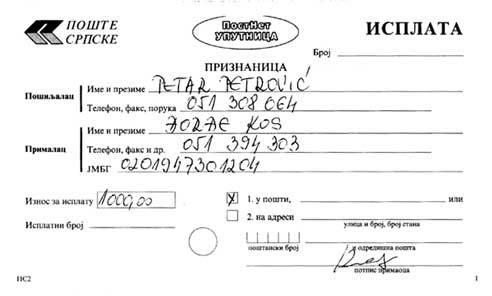 ПОШТЕ СРПСКЕ
ПостНет УПУТНИЦА
ИСПЛАТА
Број
ПРИЗНАНИЦА
Пошиљалац
Име и презиме PETAR PETROVIĆ
Телефон, факс, порука 051 308 064
Прималац
Име и презиме ĐORĐE KOS
Телефон, факс и др. 051 394 303
ЈМБГ 0201947301204
Износ за исплату 1000,00
X 1. у пошти, или
Исплатни број
2. на адреси
улица и број, број стана
поштански број
одредишна пошта
потпис примаоца
ПС2
1